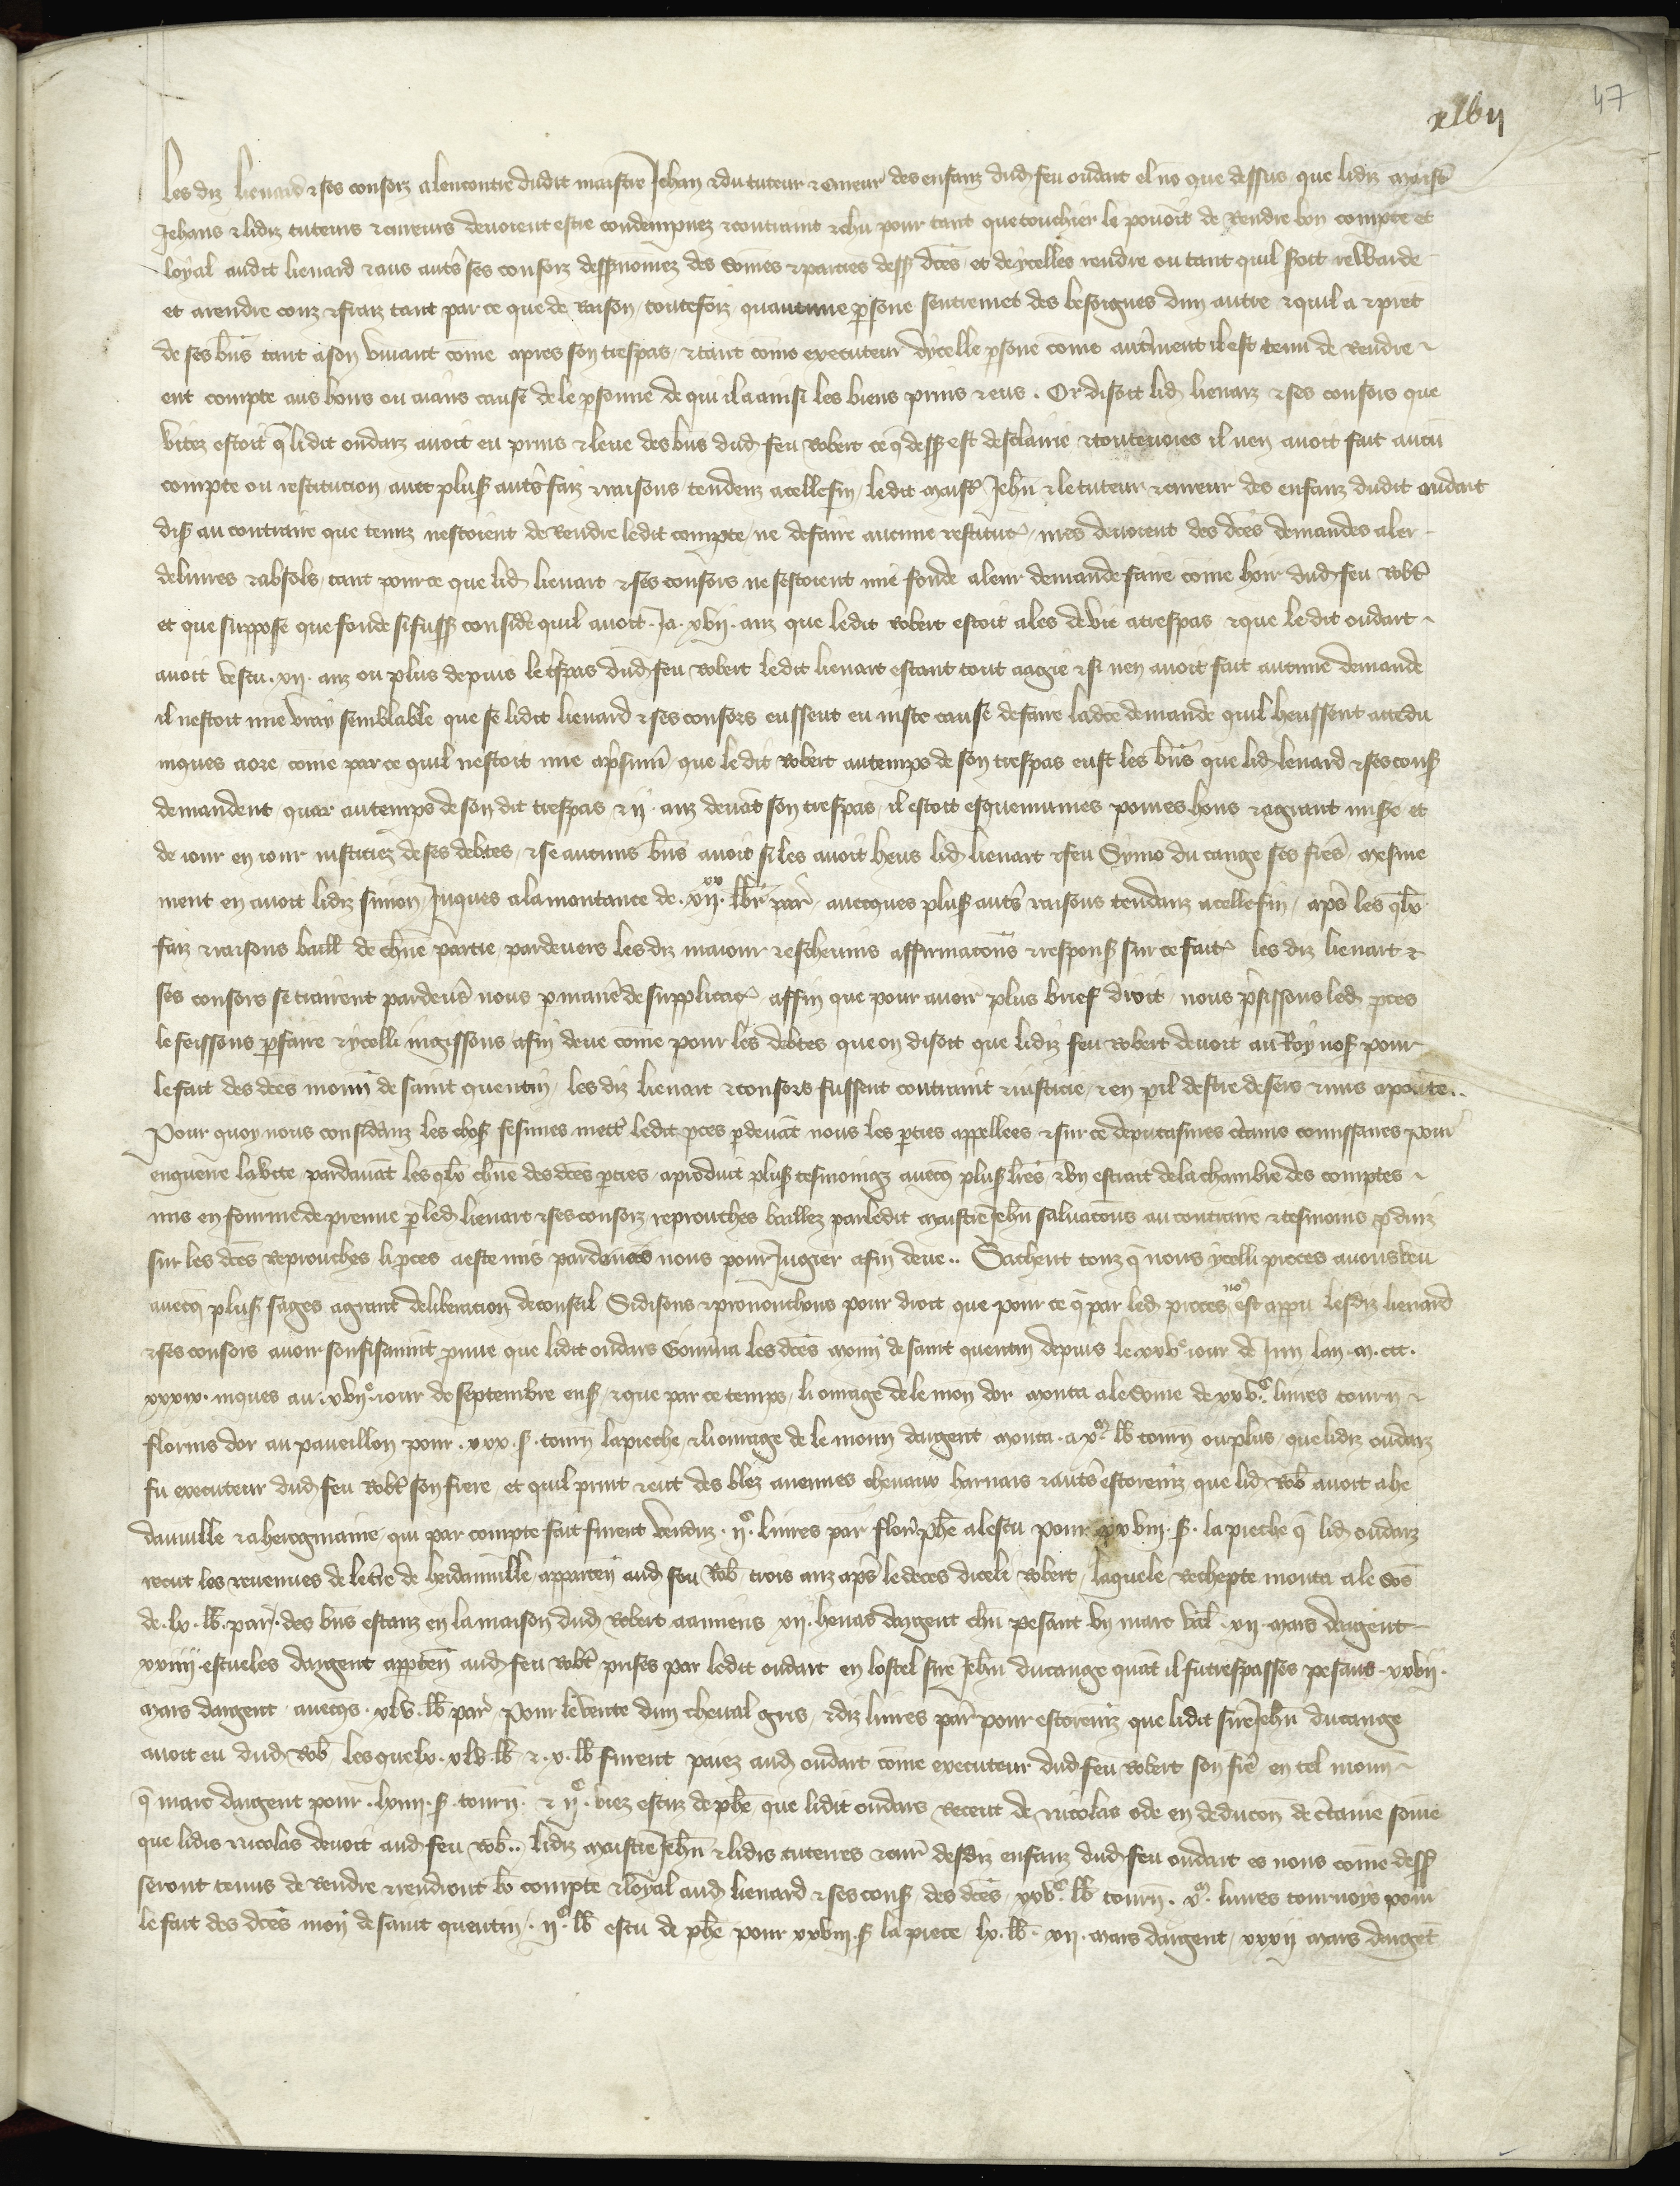 xlvii
47
Les diz lienard & ses consorz a lencontre dudit maistre Jehan & du tuteur & cureur des enfanz dud feu oudart el nō que dessus que lidiz maistr̄
Jehans & lidiz tuteurs & cureurs devoient estre condempnez & contraint & chū pour tant que touchier le povoit de Rendre bon compte et
loyal audit lienard & aus aut̄s ses consorz dessnōmez des sōmes & parties dess̄ dc̄es et dycelles rendre ou tant quil soit rewarde
et a rendre couz & fraiz tant par ce que de Raison toutefoiz quant une p̄sone sentremet des besoignes dun autre & quil a & prēt
de ses bn̄s tant a son vivant cōme apres son trespas & tant cōme executeur dycelle p̄sone cōme aut̄ment il est tenu de Rendre
ent compte aus hoirs ou aians cause de le p̄sonne de qui il a ainsi les biens prins & eus . Or disoit lid lienarz & ses consors que
vitez estoit q̄ lidit oudarz avoit eu prins & leve des bn̄s dud feu Robert ce q̄ dess̄ est desclairie & toutevoies il nen avoit fait aucū
compte ou restitucion avec plus̄ aut̄s faiz & raisons tendenz a celle fin / ledit maistr̄ Jehn̄ & le tuteur & cureur des enfanz dudit oudart
dis̄ au contraire que tenuz nestoient de Rendre ledit compte / ne de faire aucune restitut / mes devoient des dc̄es demandes aler
delivres & absols / tant pour ce que lid lienart & ses consors ne sestoient mie fonde a leur demande faire cōme hoir dud feu Robt̄
et que suppose que fonde si fuss̄ consid̄e quil avoit . Ja . xvij . anz que ledit Robert estoit ales de vie a trespas & que ledit oudart
avoit vescu . xij . anz ou plus depuis le t̄spas dud feu Robert ledit lienart estant tout aagie & si nen avoit fait aucune demande
il nestoit mie vray semblable que se lidit lienard & ses consors eussent eu juste cause de faire ladc̄e demande quil heussent attēdu
jusques a ore cōme par ce quil nestoit mie a p̄sum̄ que ledit Robert au temps de son trespas eust les bn̄s que lid lienard & ses cons̄
demandent / quar au temps de son dit trespas & ij . anz devāt son trespas / il estoit esquemunies povres hons & agravant mise et
de jour en jour justiciez de ses debtes / & se aucuns bn̄s avoit si les avoit heus lid lienart & feu Symō du cange ses fre᷑s / mesme
ment en avoit lidiz simon / Juques a la montance de . vij . xx lbr̄ par̄ / avecques plus̄ aut̄s raisons tendanz a celle fin / ap̄s les q̄lx
faiz & raisons baill̄ de chūne partie / pardevers les diz maieur & eschevins affirmacōns & respons̄ sur ce fait . les diz lienart &
ses consors se trairent pardev̄s nous p̄ manie᷑ de supplicat / affin que pour avoir plus brief droit / nous p̄sissons led pces
le feissons p̄faire & ycelli jugissons / afin deue cōme pour les debtes que on disoit que lidiz feu Robert devoit au Roy nos̄ pour
le fait des dc̄es monn̄ de saint quentin / les diz lienart & consors fussent contraint & justicie / & en p̄il destre desers & mis a povrete ..
Pour quoy nous considanz les chos̄ fesimes mett̄ ledit pces p̄devāt nous les p̄ties appellees & sur ce deputasmes c̄tains conmissaires pour
enquerre la v̄ite pardavāt les q̄lx chūne des dc̄es p̄ties a produit plus̄ tesmoingz avecq̄ plus̄ lr̄es & un estrait de la chambre des comptes
mis en fourme de preuve p̄ led lienart & ses consorz reprouches bailliez par ledit maistre Jehn̄ salvacōns au contraire & tesmoins p̄duiz
sur les dc̄es Reprouches li pces a este mis pardevers nous pour Jugier afin deue .. Sachent touz q̄ nous ycelli proces avons veu
avecq̄ plus̄ sages agrant deliberacion de conseil Si disons & prononchons pour droit que pour ce q̄ par led proces no᷑ est apparu lesdiz lienard
& ses consors avoir souffisāment prouve que lidit oudars Gouv̄na les dc̄es monn̄ de saint quentin depuis le xxv e jour de Juin lan . m . ccc .
xxxix . jusques au . xvij e jour de septembre ens̄ / & que par ce temps / li ouvrage de le mon̄ dor monta a le sōme de xxv . c livres tourn̄ &
florins dor au pavillon pour . xxx . s̄ . tourn̄ la pieche & li ouvrage de le monn̄ dargent monta . a x . m lb̄ tourn̄ ou plus / que lidiz oudarz
fu executeur dud feu Robt̄ son frere / et quil print & eut des blez avennes chevaux harnais & aut̄s estoremēz que lid Rob̄ avoit a he
dauville & a hercgmaine / qui par compte fait furent vendus . ij . c livres par̄ flor̄ p̄he a lescu pour xxviij . s̄ . la pieche q̄ lid oudarz
recut les revenues de le t̄re de heidauville / apparten̄ aud feu Rob̄ / trois anz ap̄s le deces diceli Robert / laquele Rechepte monta a le sōe
de . lx . lb̄ . par̄ . des bn̄s estanz en la maison dud Robert a amiens xij . henas dargent chū pesant un marc val̄ . xij . mars dargent
xxiiij . escueles dargent apptēn̄ aud feu Robt̄ prises par ledit oudart en lostel sire Jehn̄ du cange quāt il fu trespasses pesans . xxxij .
mars dargent / avecqs . xlv . lb̄ par̄ / Pour le vente dun cheval gris / & diz livres par̄ pour estoremēz que lidit sire Jehn̄ du cange
avoit eu dud Rob̄ / les quelx . xlv . lb̄ . & . x . lb̄ furent paiez aud oudart cōme executeur dud feu Robert son fre᷑ en tel monn̄
q̄ marc dargent pour . lxiiij . s̄ . tourn̄ . & ij . c viez escuz de p̄he / que lidit oudars Receut de nicolas ode en deducōn de c̄taine sōme
que lidis nicolas devoit aud feu Rob̄ .. lidiz maistre Jehn̄ & lidis tuteurs & cur̄ desdiz enfanz dud feu oudart es nons cōme dess̄
seront tenus de Rendre & rendront bō compte & loyal aud lienard & ses cons̄ des dc̄es / xxv . c lb̄ tourn̄ . x . m livres tournoys pour
le fait des dc̄es mon̄ de saint quentin / . ij . c lb̄ escu de p̄he pour xxviij . s̄ la piece / lx . lb̄ . xij . mars dargent / xxxij mars dargēt